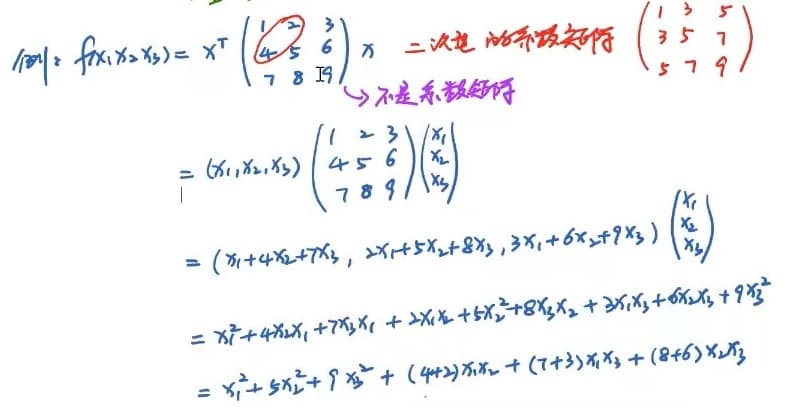 例: f(x₁x₂x₃) = xᵀ (1 2 3; 4 5 6; 7 8 9) x 二次型的系数矩阵 (1 3 5; 3 5 7; 5 7 9)
↳ 不是系数矩阵
= (x₁,x₂,x₃) (1 2 3; 4 5 6; 7 8 9) (x₁; x₂; x₃)
= (x₁+4x₂+7x₃, 2x₁+5x₂+8x₃, 3x₁+6x₂+9x₃) (x₁; x₂; x₃)
= x₁²+4x₂x₁+7x₃x₁+2x₁x₂+5x₂²+8x₃x₂+3x₁x₃+6x₂x₃+9x₃²
= x₁²+5x₂²+9x₃²+(4+2)x₁x₂+(7+3)x₁x₃+(8+6)x₂x₃